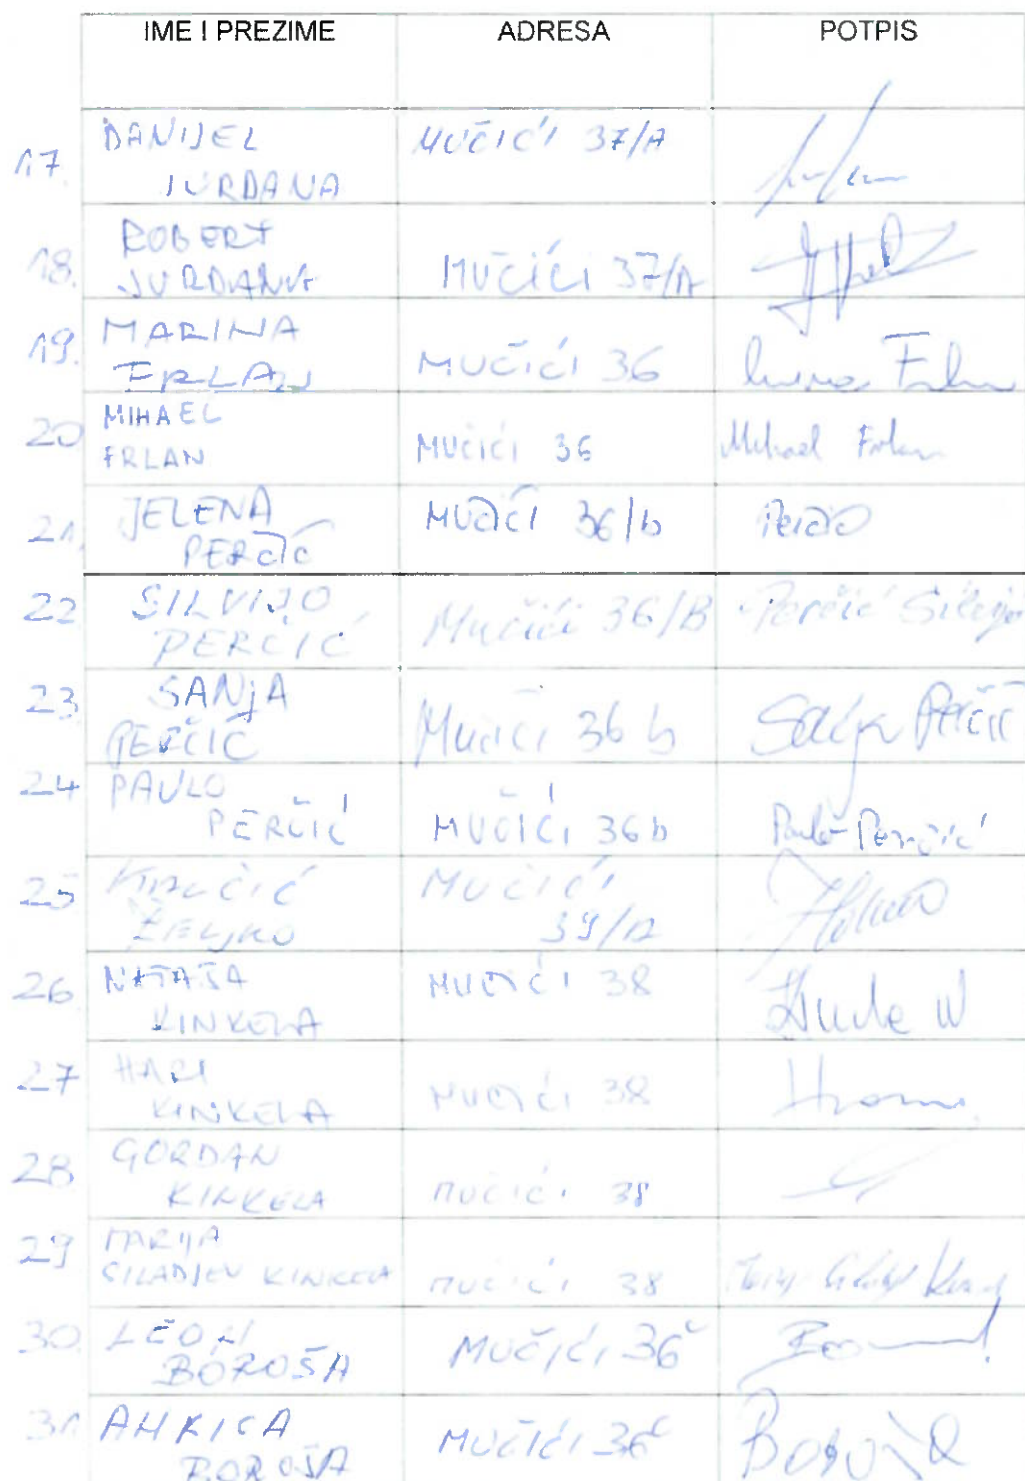 IME I PREZIME ADRESA POTPIS
17. DANIJEL MUČIĆI 37/A
JURDANA
18. ROBERT
JURDANA MUČIĆI 37/A
19. MARINA
FRLAN MUČIĆI 36 Frlan
20 MIHAEL
FRLAN MUČIĆI 36 Mihael Frlan
21. JELENA MUČIĆI 36/b
PERČIĆ
22 SILVIJO
PERČIĆ Mučići 36/B Perčić Silvijo
23 SANJA
PERČIĆ Mučići 36 b Sanja Perčić
24 PAULO
PERČIĆ MUČIĆI 36b Paulo Perčić
25 MUČIĆI
ŽELJKO 39/A
26 NATAŠA MUČIĆI 38
KINKELA
27 HARI
KINKELA MUČIĆI 38
28 GORDAN
KINKELA MUČIĆI 38
29 MARIJA
SILADJEV KINKELA MUČIĆI 38
30. LEON
BOROŠA MUČIĆI 36c
31 ANKICA
BOROŠA MUČIĆI 36c Boroša